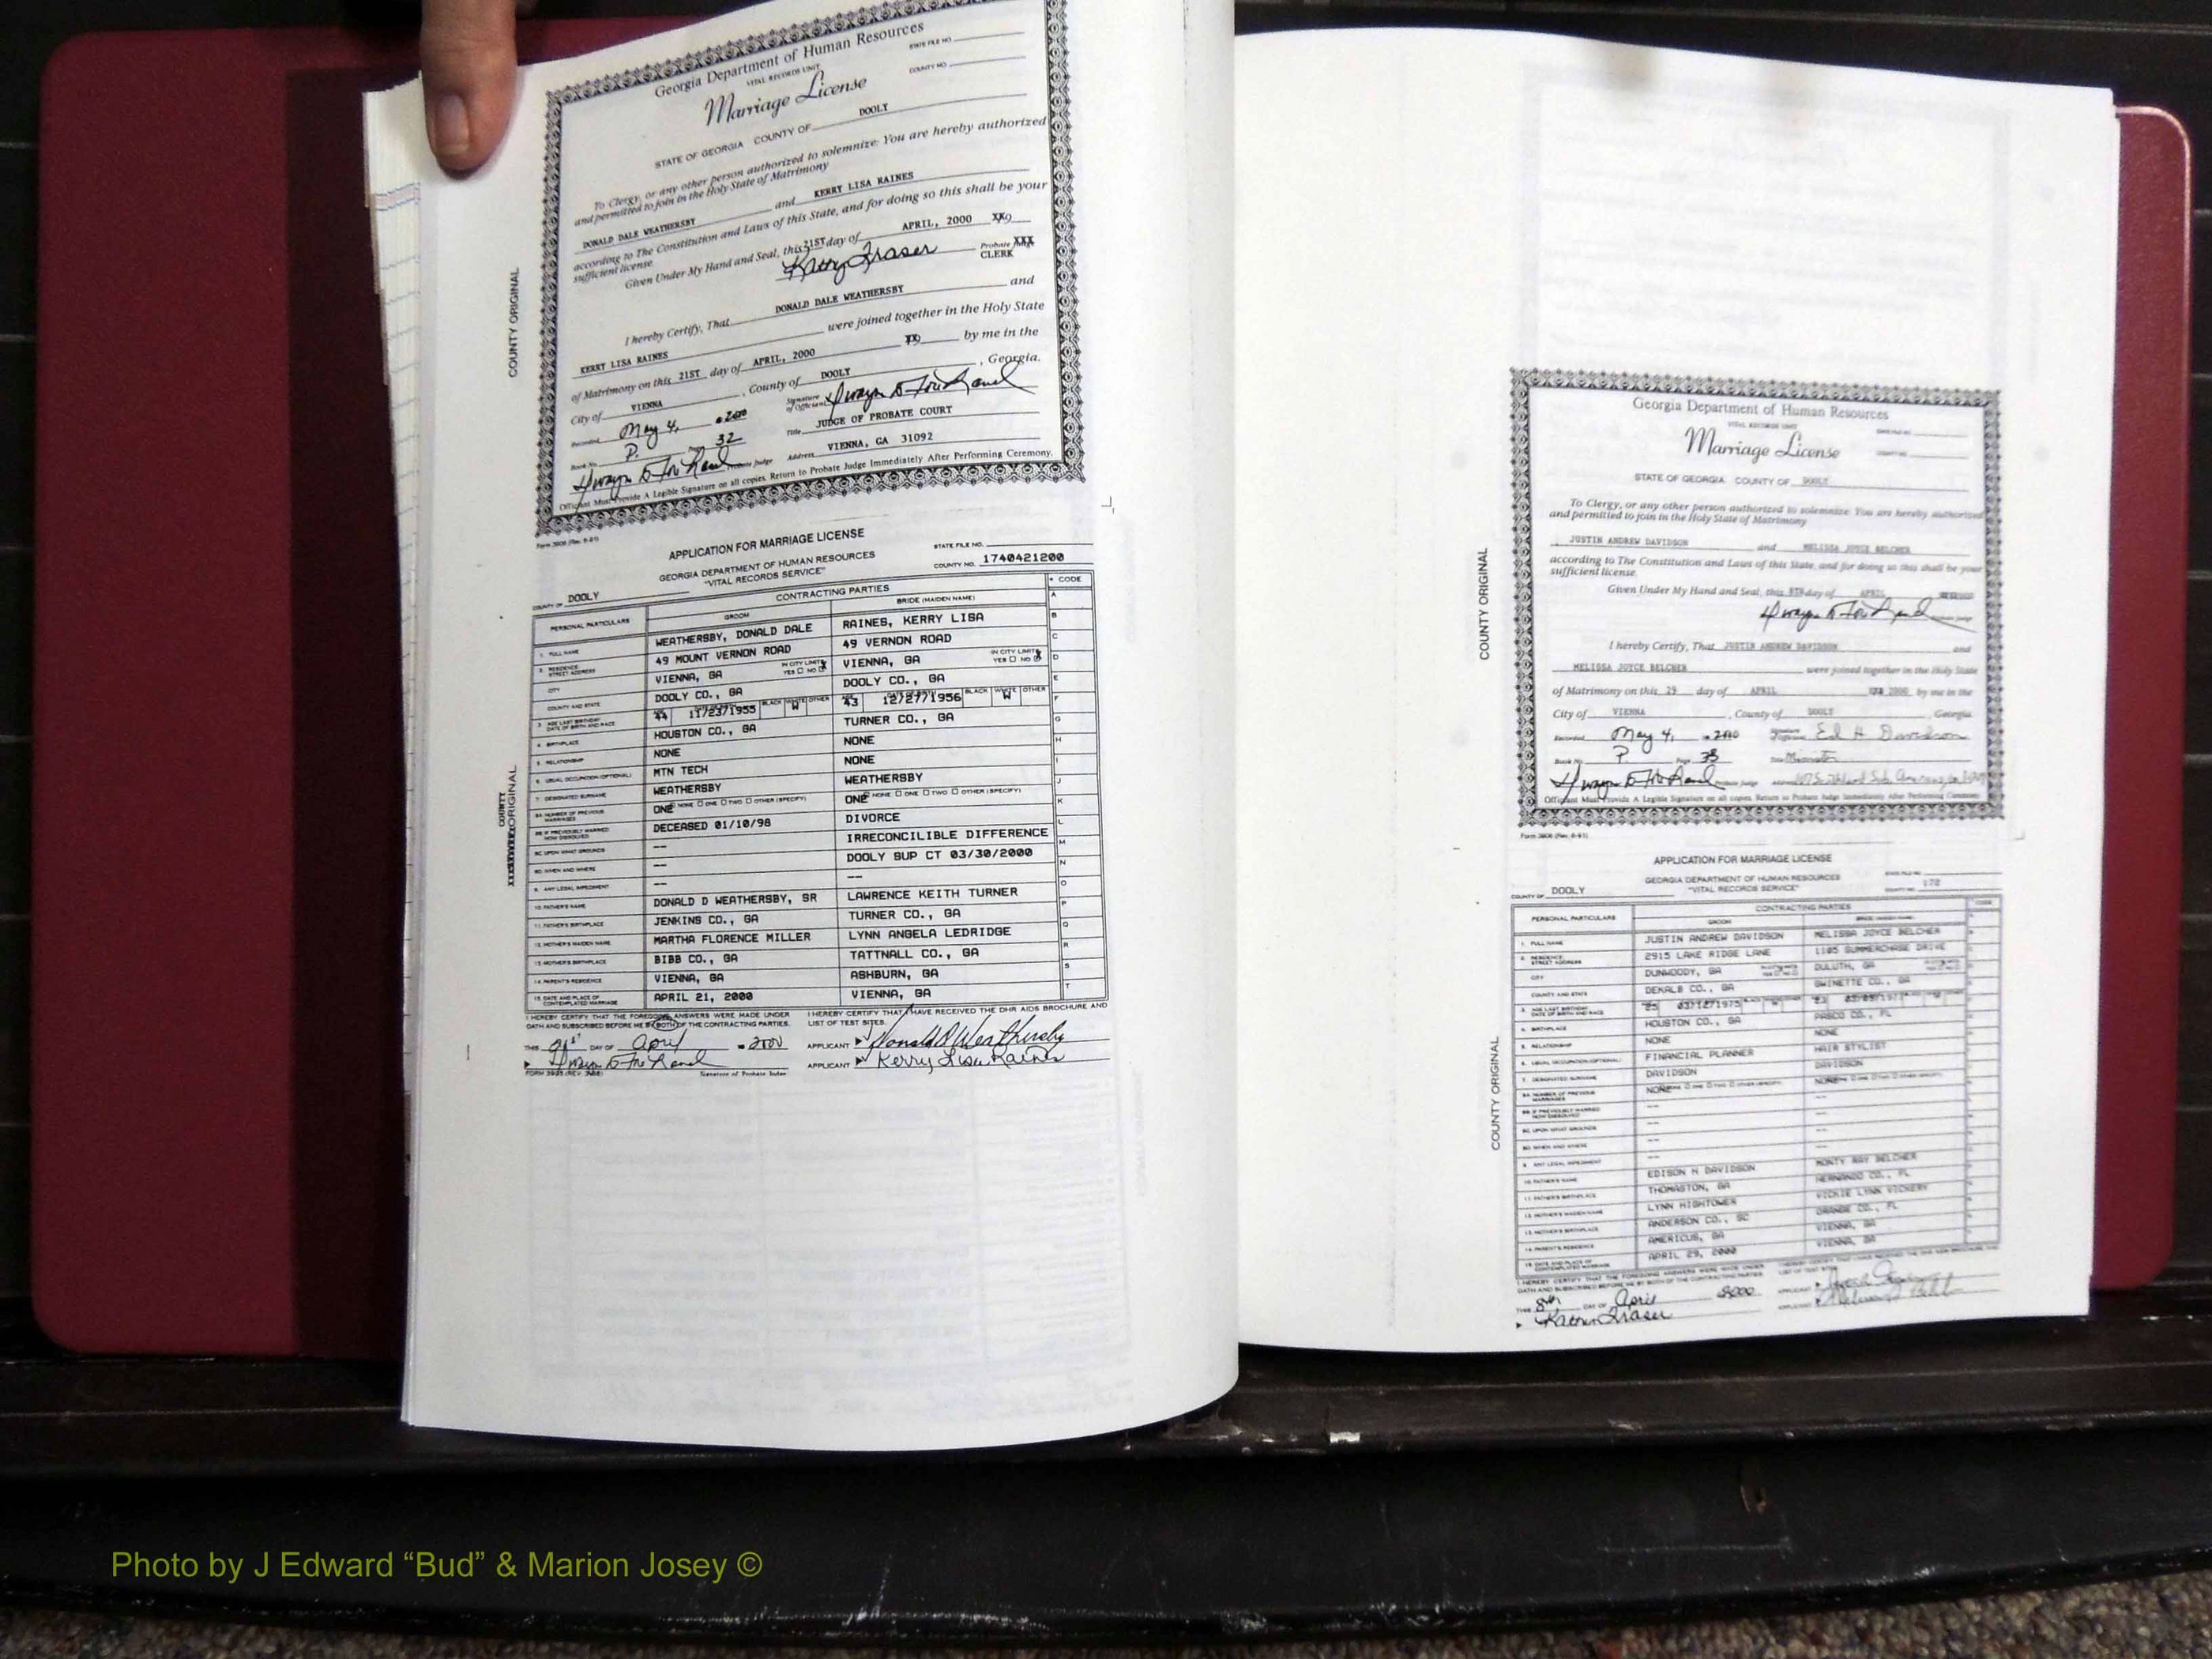 Georgia Department of Human Resources
VITAL RECORDS UNIT
STATE FILE NO.
Marriage License
COUNTY NO.
STATE OF GEORGIA COUNTY OF DOOLY
To Clergy, or any other person authorized to solemnize: You are hereby authorized
and permitted to join in the Holy State of Matrimony
DONALD DALE WEATHERSBY and KERRY LISA RAINES
according to The Constitution and Laws of this State, and for doing so this shall be your
sufficient license.
Given Under My Hand and Seal, this 21ST day of APRIL, 2000
Kathy Fraser Probate
CLERK
I hereby Certify, That DONALD DALE WEATHERSBY and
KERRY LISA RAINES were joined together in the Holy State
of Matrimony on this 21ST day of APRIL, 2000 by me in the
City of VIENNA, County of DOOLY, Georgia.
Recorded May 4, 2000 Signature of Officiant
Book No. P. 32 Title JUDGE OF PROBATE COURT
Probate Judge Address VIENNA, GA 31092
Officiant Must Provide A Legible Signature on all copies. Return to Probate Judge Immediately After Performing Ceremony.
COUNTY ORIGINAL
APPLICATION FOR MARRIAGE LICENSE
GEORGIA DEPARTMENT OF HUMAN RESOURCES
"VITAL RECORDS SERVICE"
STATE FILE NO.
COUNTY NO. 1740421200
COUNTY OF DOOLY
CONTRACTING PARTIES * CODE
PERSONAL PARTICULARS GROOM BRIDE (MAIDEN NAME)
1. FULL NAME WEATHERSBY, DONALD DALE RAINES, KERRY LISA
2. RESIDENCE STREET ADDRESS 49 MOUNT VERNON ROAD 49 VERNON ROAD
CITY VIENNA, GA IN CITY LIMITS YES NO VIENNA, GA IN CITY LIMITS YES NO
COUNTY AND STATE DOOLY CO., GA DOOLY CO., GA
3. AGE LAST BIRTHDAY DATE OF BIRTH AND RACE 44 11/23/1955 BLACK WHITE OTHER W 43 12/27/1956 BLACK WHITE OTHER W
4. BIRTHPLACE HOUSTON CO., GA TURNER CO., GA
5. RELATIONSHIP NONE NONE
6. USUAL OCCUPATION (OPTIONAL) MTN TECH NONE
7. DESIGNATED SURNAME WEATHERSBY WEATHERSBY
8A. NUMBER OF PREVIOUS MARRIAGES ONE NONE ONE TWO OTHER (SPECIFY) ONE NONE ONE TWO OTHER (SPECIFY)
8B. IF PREVIOUSLY MARRIED HOW DISSOLVED DECEASED 01/10/98 DIVORCE
8C. UPON WHAT GROUNDS -- IRRECONCILIBLE DIFFERENCE
8D. WHEN AND WHERE -- DOOLY SUP CT 03/30/2000
9. ANY LEGAL IMPEDIMENT -- --
10. FATHER'S NAME DONALD D WEATHERSBY, SR LAWRENCE KEITH TURNER
11. FATHER'S BIRTHPLACE JENKINS CO., GA TURNER CO., GA
12. MOTHER'S MAIDEN NAME MARTHA FLORENCE MILLER LYNN ANGELA LEDRIDGE
13. MOTHER'S BIRTHPLACE BIBB CO., GA TATTNALL CO., GA
14. PARENT'S RESIDENCE VIENNA, GA ASHBURN, GA
15. DATE AND PLACE OF CONTEMPLATED MARRIAGE APRIL 21, 2000 VIENNA, GA
I HEREBY CERTIFY THAT THE FOREGOING ANSWERS WERE MADE UNDER
OATH AND SUBSCRIBED BEFORE ME BY BOTH OF THE CONTRACTING PARTIES.
I HEREBY CERTIFY THAT I HAVE RECEIVED THE DHR AIDS BROCHURE AND
LIST OF TEST SITES.
THIS 21st DAY OF April 2000 APPLICANT Donald D Weathersby
APPLICANT Kerry Lisa Raines
Signature of Probate Judge
COUNTY
ORIGINAL
Georgia Department of Human Resources
VITAL RECORDS UNIT
Marriage License
STATE OF GEORGIA COUNTY OF DOOLY
To Clergy, or any other person authorized to solemnize: You are hereby authorized
and permitted to join in the Holy State of Matrimony
JUSTIN ANDREW DAVIDSON and MELISSA JOYCE BELCHER
according to The Constitution and Laws of this State, and for doing so this shall be your
sufficient license.
Given Under My Hand and Seal, this 8TH day of APRIL
I hereby Certify, That JUSTIN ANDREW DAVIDSON and
MELISSA JOYCE BELCHER were joined together in the Holy State
of Matrimony on this 29 day of APRIL 2000 by me in the
City of VIENNA, County of DOOLY, Georgia
Recorded May 4, 2000 Ed H Davidson
Book No. P. Page 33 Title Minister
Officiant Must Provide A Legible Signature on all copies. Return to Probate Judge Immediately After Performing Ceremony
COUNTY ORIGINAL
APPLICATION FOR MARRIAGE LICENSE
GEORGIA DEPARTMENT OF HUMAN RESOURCES
"VITAL RECORDS SERVICE"
COUNTY OF DOOLY
CONTRACTING PARTIES
PERSONAL PARTICULARS GROOM
1. FULL NAME JUSTIN ANDREW DAVIDSON MELISSA JOYCE BELCHER
2. RESIDENCE STREET ADDRESS 2915 LAKE RIDGE LANE 1105 SUMMERCHASE DRIVE
CITY DUNWOODY, GA DULUTH, GA
COUNTY AND STATE DEKALB CO., GA GWINETTE CO., GA
4. BIRTHPLACE HOUSTON CO., GA PASCO CO., FL
5. RELATIONSHIP NONE NONE
6. USUAL OCCUPATION (OPTIONAL) FINANCIAL PLANNER HAIR STYLIST
7. DESIGNATED SURNAME DAVIDSON DAVIDSON
8A. NUMBER OF PREVIOUS MARRIAGES NONE NONE
8B. IF PREVIOUSLY MARRIED HOW DISSOLVED -- --
8C. UPON WHAT GROUNDS -- --
8D. WHEN AND WHERE -- --
9. ANY LEGAL IMPEDIMENT -- --
10. FATHER'S NAME EDISON H DAVIDSON MONTY RAY BELCHER
11. FATHER'S BIRTHPLACE THOMASTON, GA HERNANDO CO., FL
12. MOTHER'S MAIDEN NAME LYNN HIGHTOWER VICKIE LYNN VICKERY
13. MOTHER'S BIRTHPLACE ANDERSON CO., SC ORANGE CO., FL
14. PARENT'S RESIDENCE AMERICUS, GA VIENNA, GA
15. DATE AND PLACE OF CONTEMPLATED MARRIAGE APRIL 29, 2000 VIENNA, GA
I HEREBY CERTIFY THAT THE FOREGOING ANSWERS WERE MADE UNDER
OATH AND SUBSCRIBED BEFORE ME BY BOTH OF THE CONTRACTING PARTIES.
THIS 8th DAY OF April 2000
Kathy Fraser
COUNTY ORIGINAL
Photo by J Edward “Bud” & Marion Josey ©